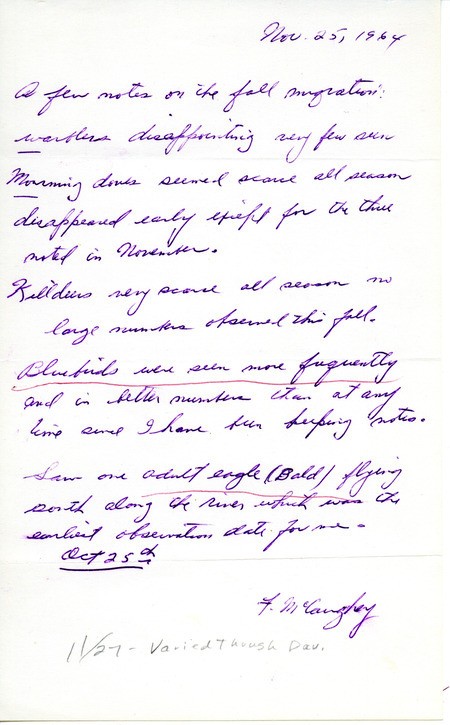 Nov. 25, 1964
A few notes on the fall migration:
warblers disappointing very few seen
Mourning doves seemed scarce all season
disappeared early except for the three
noted in November.
Killdeers very scarce all season no
large numbers observed this fall.
Bluebirds were seen more frequently
and in better numbers than at any
time since I have been keeping notes.
Saw one adult eagle (Bald) flying
south along the river which was the
earliest observation date for me.
Oct 25th
F. McCaughey
11/27 - Varied Thrush Dav.